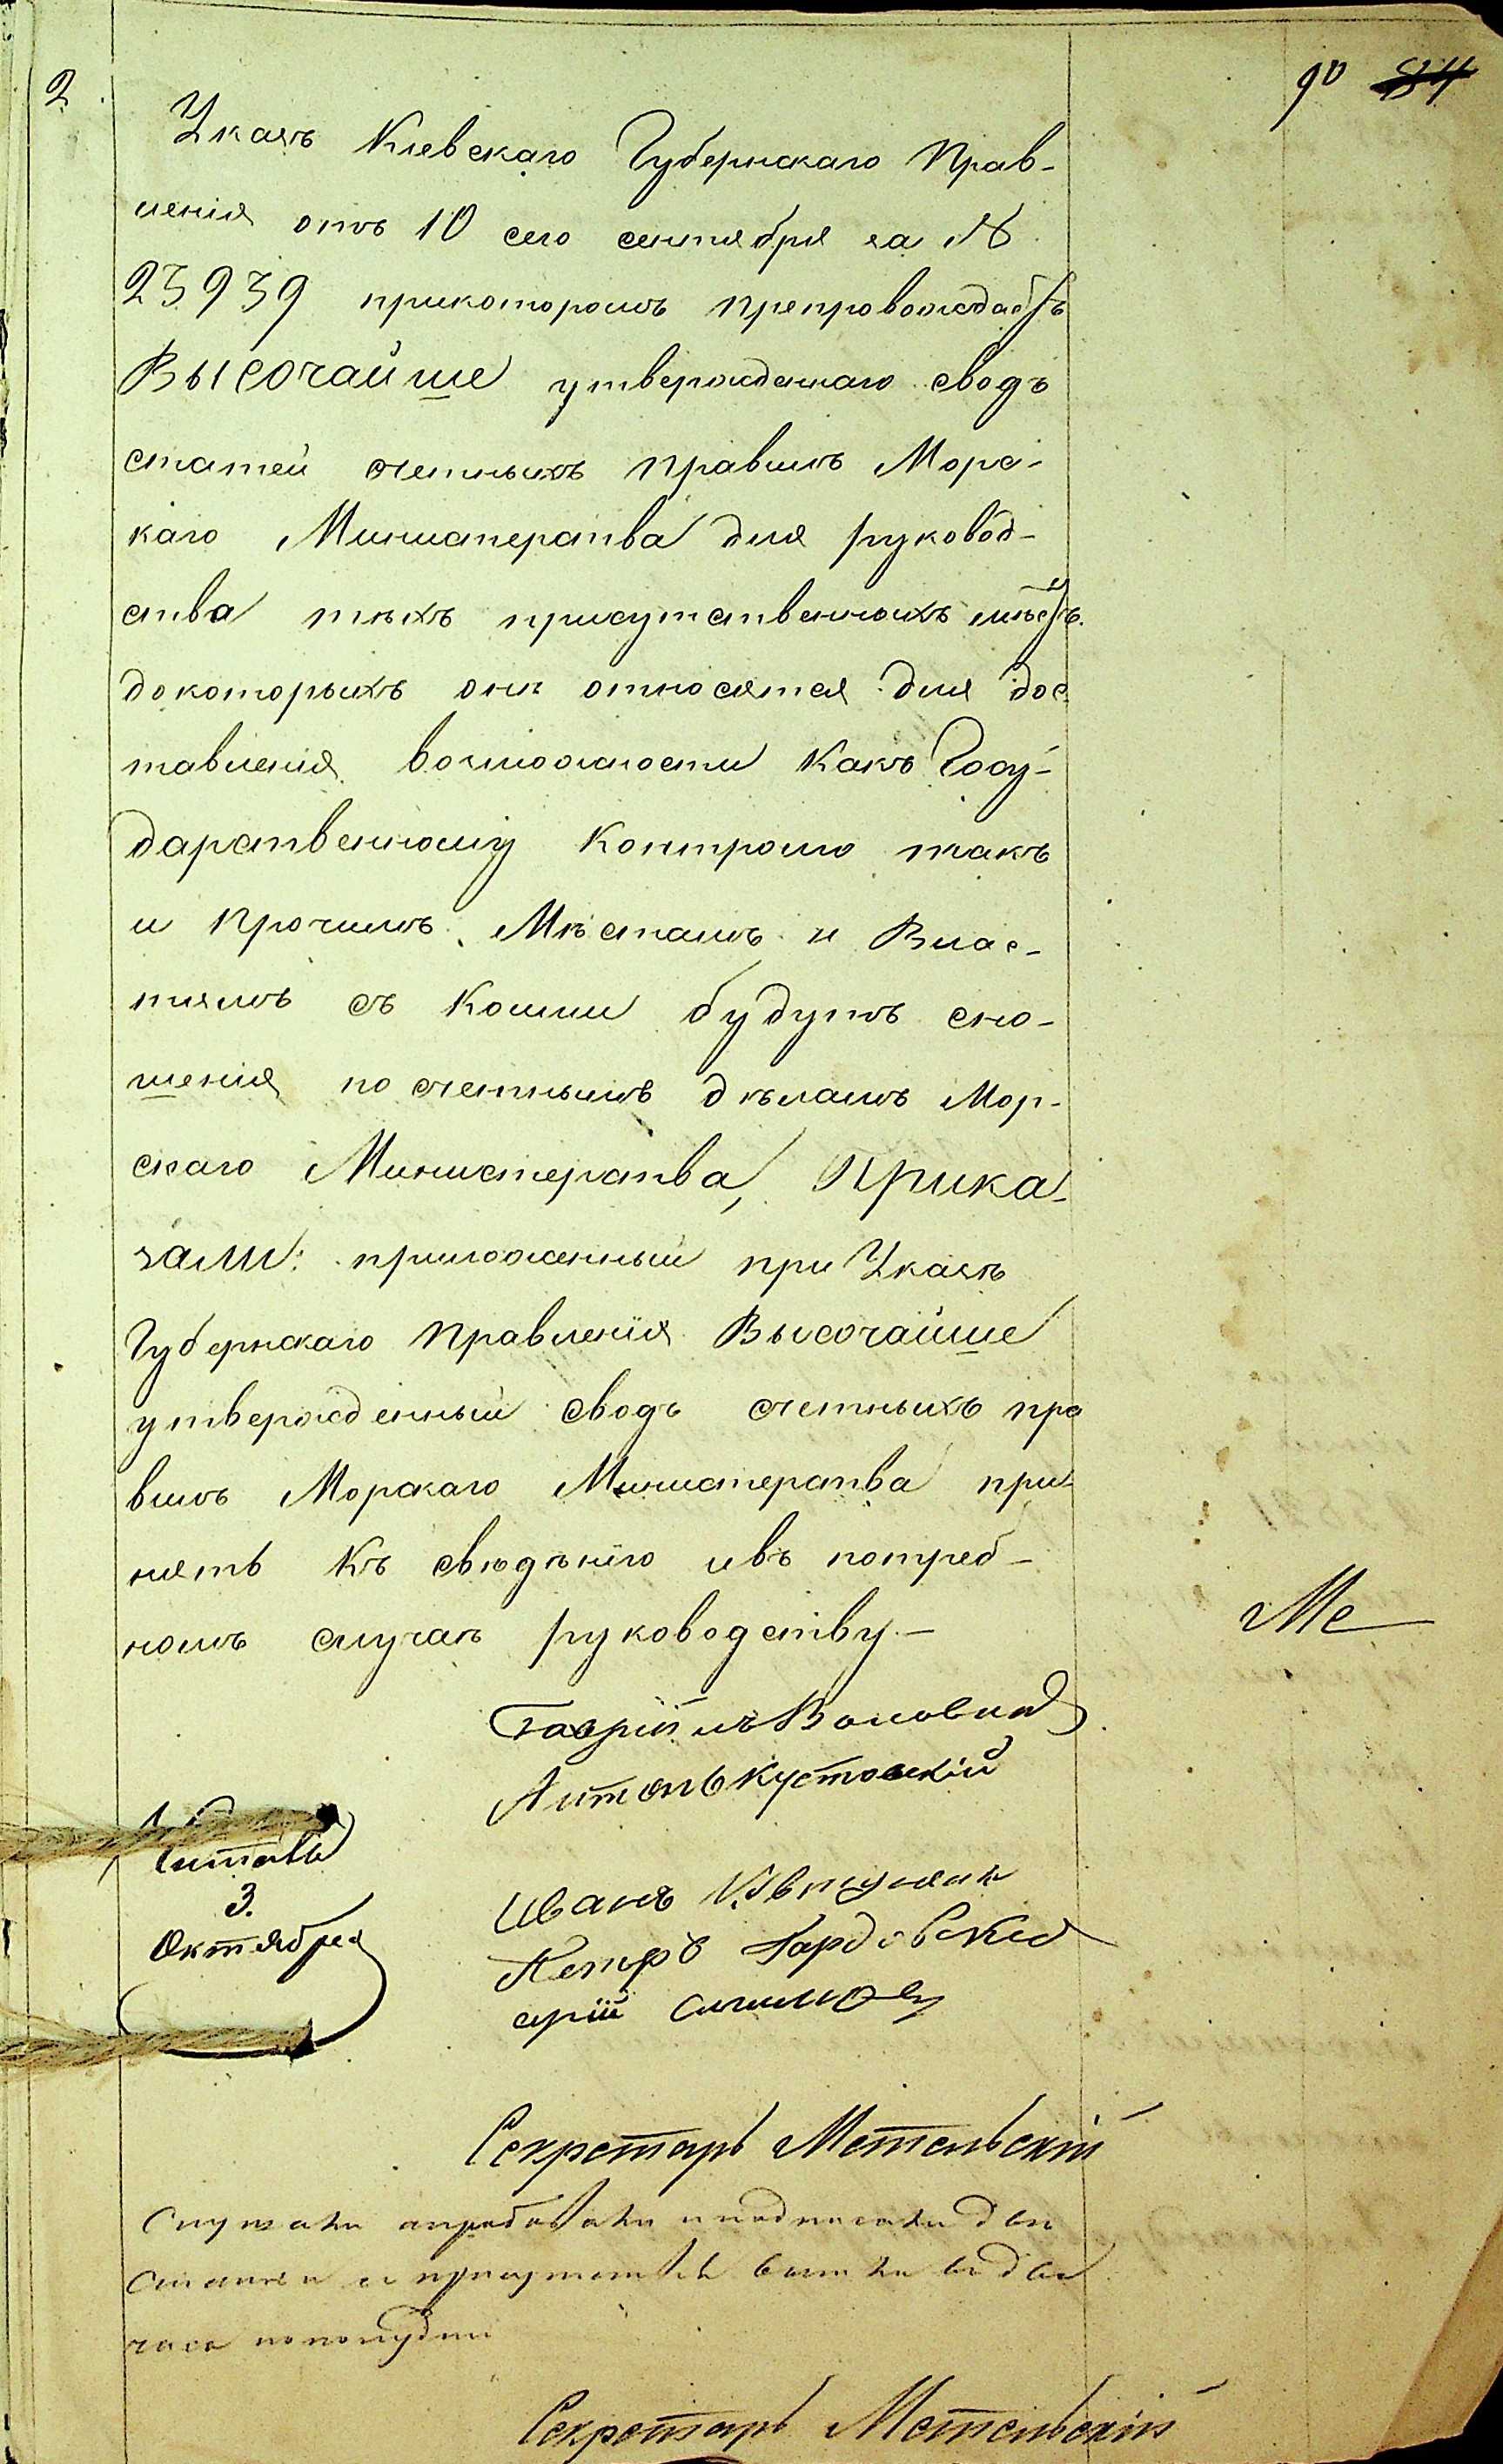 2.
90 84
Указъ Кіевскаго Губернскаго Прав-
ленія отъ 10 сего сентября за №
23939 прикоторомъ препровождаетъ
Высочайше утвержденнаго сводъ
статей счетныхъ правилъМорс-
каго Министерства для руковод-
ства тѣхъ присутственныхъ мѣстъ
докоторыхъ онъ относятся для дос-
тавленія возможности какъ Госу-
дарственному Контролю такъ
и прочимъ Мѣстамъ и Влас-
тямъ съ коими будутъ сно-
шенія по счетнымъ дѣламъ Мор-
скаго Министерства, Прика-
зали: приложенный при Указѣ
Губернскаго Правленія Высочайше
утвержденный сводъ счетныхъ пра
вилъ Морскаго Министерства при-
нять къ свѣдѣнію ивъ потреб-
номъ случаѣ руководству.—
Ме
Антонъ Кустовскій
Читалъ
3.
Октября
Иванъ
Петръ
Секретарь Метельскій
Слушали апробовали и подписали двѣ
статьи и присутствіе вышли въ два
часа пополудни
Секретарь Метельскій